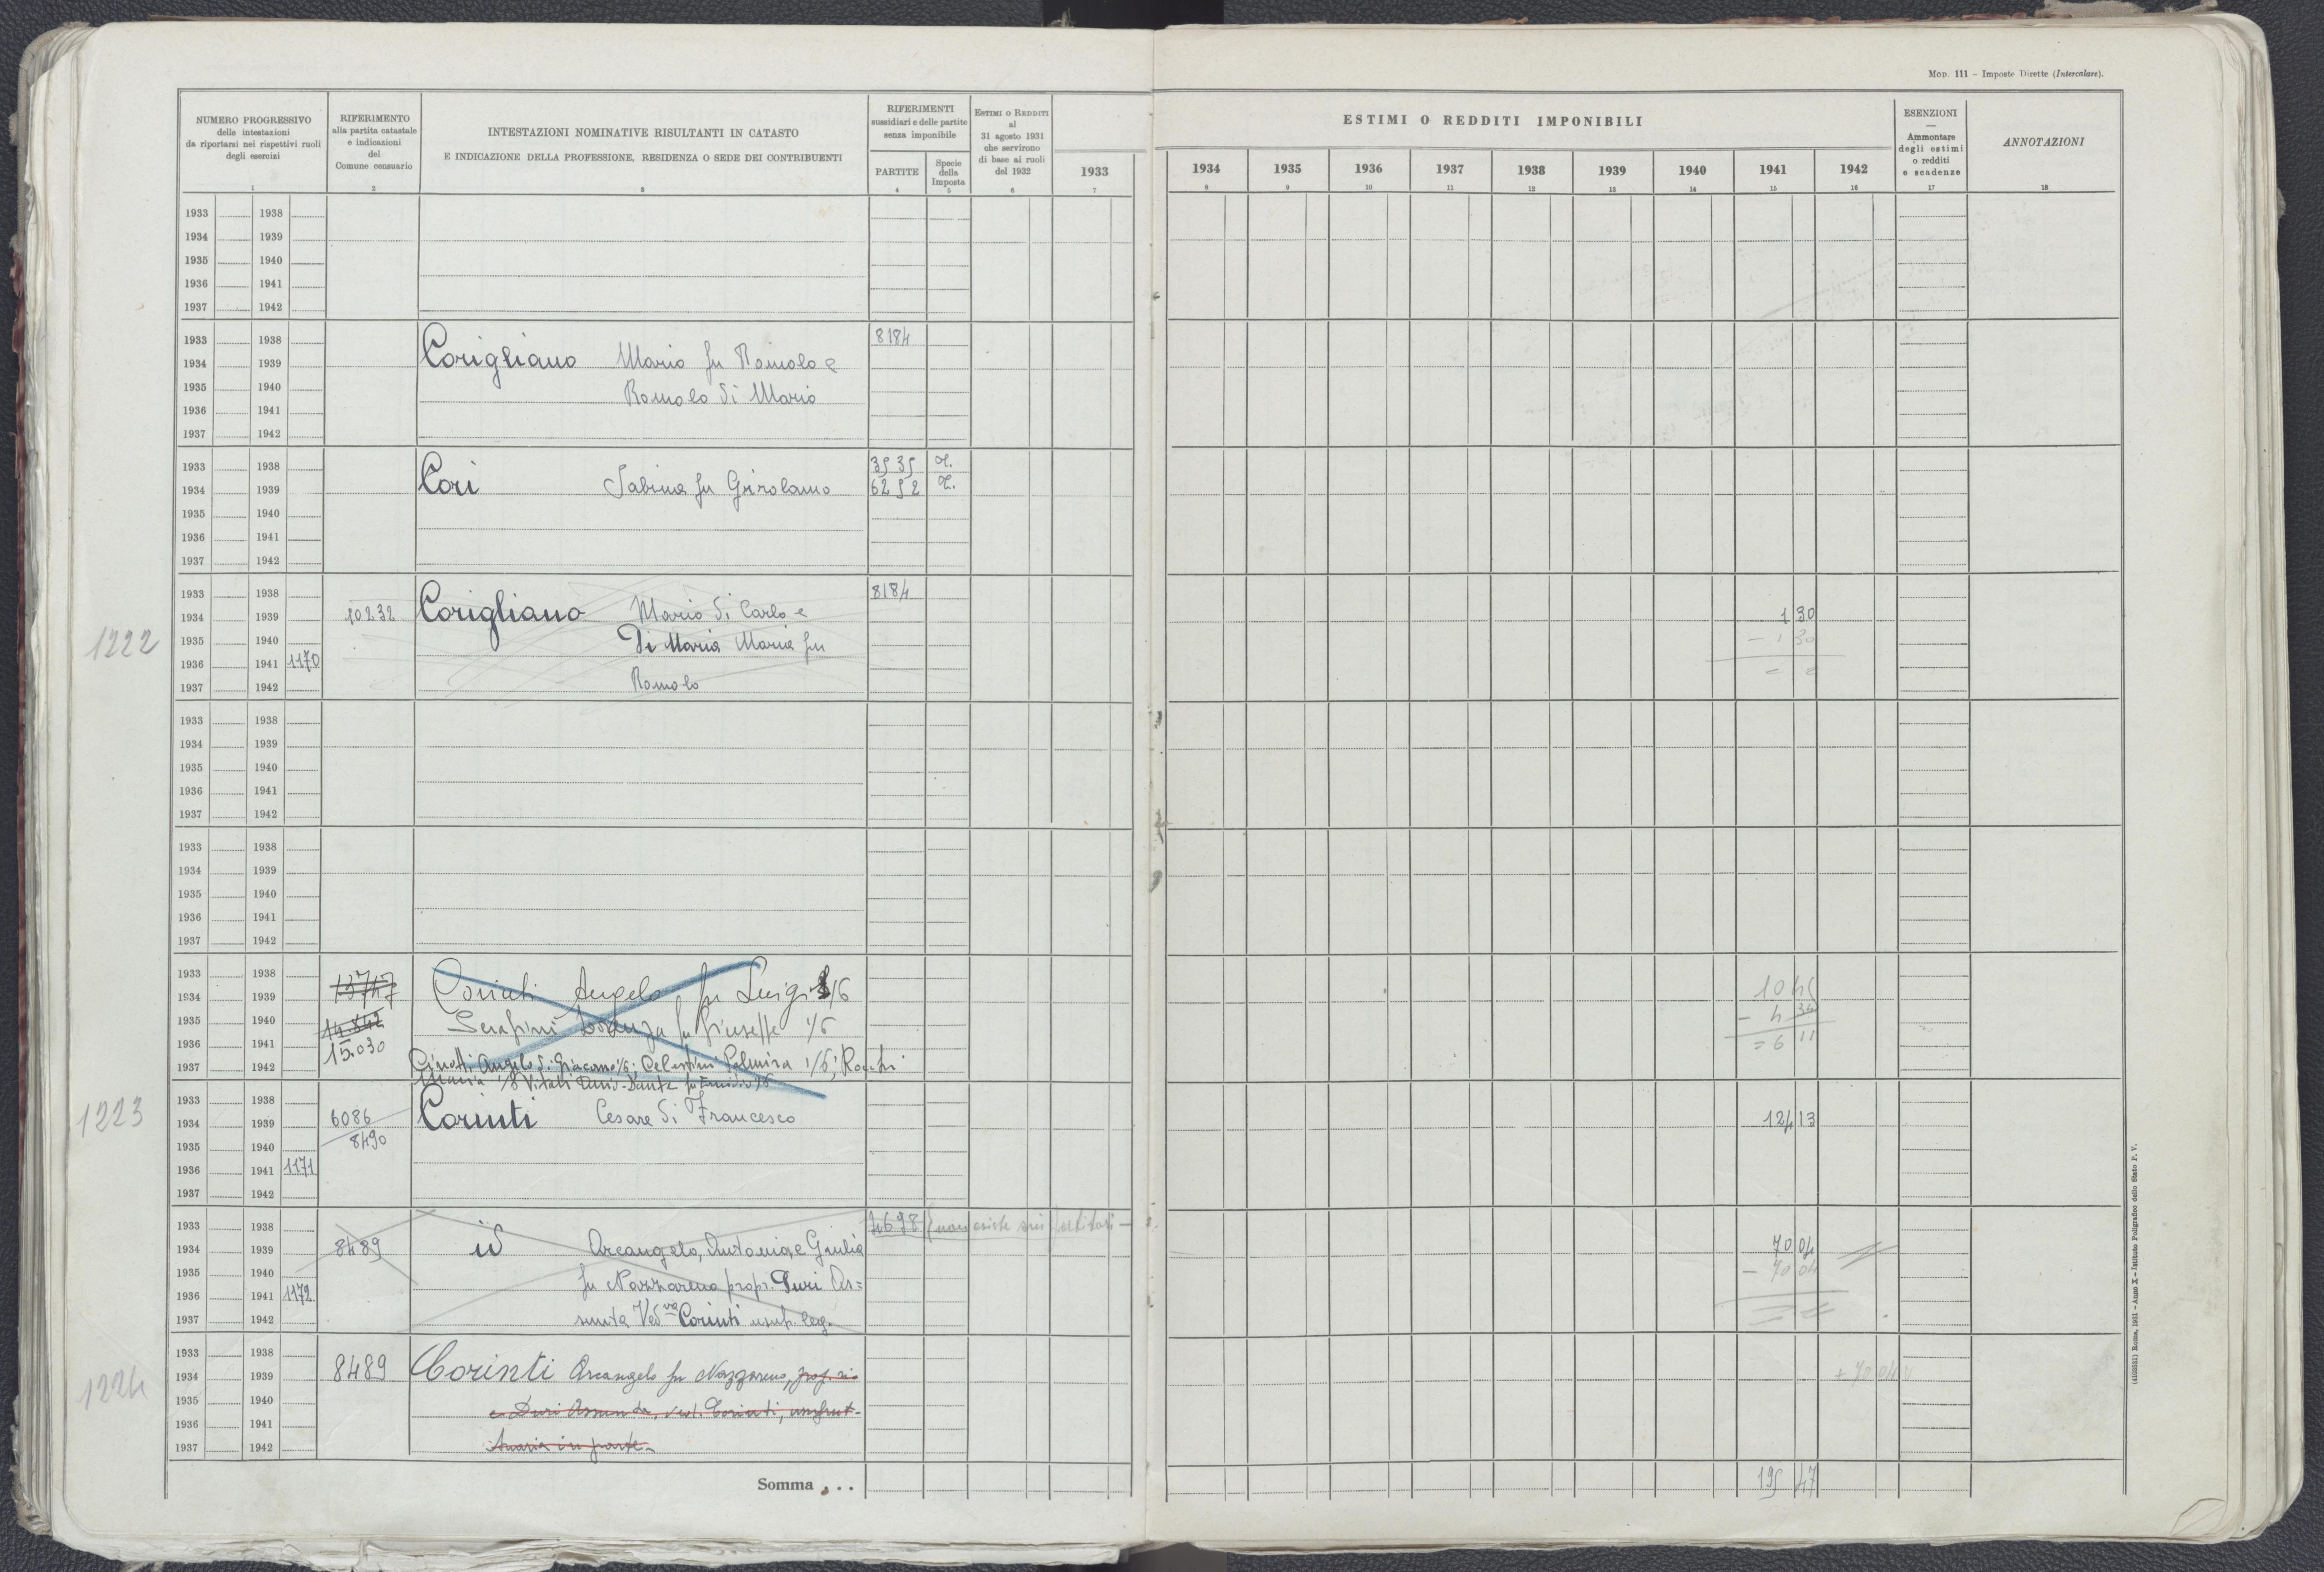 MOD. 111 - Imposte Dirette (Intercalare).
NUMERO PROGRESSIVO
delle intestazioni
da riportarsi nei rispettivi ruoli
degli esercizi
1
RIFERIMENTO
alla partita catastale
e indicazioni
del
Comune censuario
2
INTESTAZIONI NOMINATIVE RISULTANTI IN CATASTO
E INDICAZIONE DELLA PROFESSIONE, RESIDENZA O SEDE DEI CONTRIBUENTI
3
RIFERIMENTI
sussidiari e delle partite
senza imponibile
PARTITE
4
Specie
della
Imposta
5
ESTIMI O REDDITI
al
31 agosto 1931
che servirono
di base ai ruoli
del 1932
6
1933
7
ESTIMI O REDDITI IMPONIBILI
1934 1935 1936 1937 1938 1939 1940 1941 1942
8 9 10 11 12 13 14 15 16
ESENZIONI
—
Ammontare
degli estimi
o redditi
e scadenze
17
ANNOTAZIONI
18
1933 1938
1934 1939
1935 1940
1936 1941
1937 1942
1933 1938 8184
1934 1939 Corigliano Mario fu Romolo e
1935 1940 Romolo di Mario
1936 1941
1937 1942
1933 1938 3535
1934 1939 Cori Sabina fu Girolamo 6252
1935 1940
1936 1941
1937 1942
1933 1938 8184
1934 1939 10232 Corigliano Mario di Carlo e 1 30
1222 1935 1940 Di Maria Maria fu - 1 30
1936 1941 1170 = =
1937 1942 Romolo
1933 1938
1934 1939
1935 1940
1936 1941
1937 1942
1933 1938
1934 1939
1935 1940
1936 1941
1937 1942
1933 1938
1934 1939 13747 Corinti Angelo fu Luigi 1/6 10 45
1935 1940 14.842 Serafini fu Giuseppe 1/6 - 4 34
1936 1941 15.030 = 6 11
1937 1942 Cinotti Angelo di Giacomo 1/6; Celestini Palmira 1/6; Rocchi
1933 1938
1223 1934 1939 6086 Corinti Cesare di Francesco 124 13
1935 1940 8490
1936 1941 1171
1937 1942
1933 1938
1934 1939 8489 id Arcangelo, Antonia e Giulia 70 04
1935 1940 fu Nazzareno propr. Duri As= - 70 04
1936 1941 1172
1937 1942 sunta Ved va Corinti usuf. leg.
1933 1938
1224 1934 1939 8489 Corinti Arcangelo fu Nazzareno, proprio + 70 04
1935 1940 e Duri Assunta, ved. Corinti, usufrut-
1936 1941
1937 1942 tuaria in parte-
Somma . . . 195 47
(4103551) Roma, 1931 - Anno X - Istituto Poligrafico dello Stato P. V.